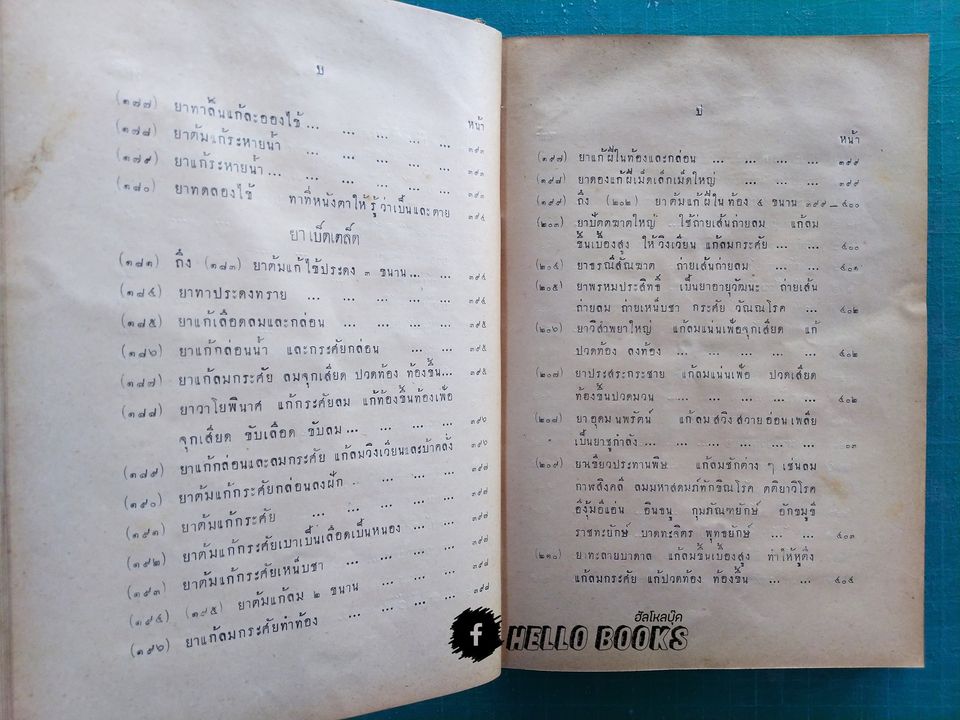 บ
หน้า
(๑๗๗) ยาทาลิ้นแก้ละอองไข้ ... ... ... ... ๓๙๓
(๑๗๘) ยาต้มแก้ระหายน้ำ ... ... ... ...
(๑๗๙) ยาแก้ระหายน้ำ ... ... ... ... ... ๓๙๓
(๑๘๐) ยาทดลองไข้ ทาที่หนังตาให้รู้ว่าเป็นและตาย ๓๙๔
ยาเบ็ดเตล็ด
(๑๘๑) ถึง (๑๘๓) ยาต้มแก้ไข้ประดง ๓ ขนาน ... ... ๓๙๔
(๑๘๔) ยาทาประดงทราย ... ... ... ... ๓๙๔
(๑๘๕) ยาแก้เลือดลมและกล่อน ... ... ... ... ๓๙๕
(๑๘๖) ยาแก้กล่อนน้ำ และกระศัยกล่อน ... ... ๓๙๕
(๑๘๗) ยาแก้ลมกระศัย ลมจุกเสียด ปวดท้อง ท้องขึ้น ... ๓๙๕
(๑๘๘) ยาวาโยพินาศ แก้กระศัยลม แก้ท้องขึ้นท้องเฟ้อ
จุกเสียด ขับเลือด ขับลม ... ... ... ... ๓๙๖
(๑๘๙) ยาแก้กล่อนและลมกระศัย แก้ลมวิงเวียนและบ้าคลั่ง ๓๙๖
(๑๙๐) ยาต้มแก้กระศัยกล่อนลงฝัก ... ... ... ๓๙๗
(๑๙๑) ยาต้มแก้กระศัย ... ... ... ... ๓๙๗
(๑๙๒) ยาต้มแก้กระศัยเบาเป็นเลือดเป็นหนอง ... ... ๓๙๗
(๑๙๓) ยาต้มแก้กระศัยเหน็บชา ... ... ... ๓๙๘
(๑๙๔) (๑๙๕) ยาต้มแก้ลม ๒ ขนาน ... ... ... ๓๙๘
(๑๙๖) ยาแก้ลมกระศัยทำท้อง ... ... ...
ป
หน้า
(๑๙๗) ยาแก้ฝีในท้องและกล่อน ... ... ... ... ๓๙๙
(๑๙๘) ยาดองแก้ฝีเม็ดเล็กเม็ดใหญ่ ... ... ... ๓๙๙
(๑๙๙) ถึง (๒๐๒) ยาต้มแก้ฝีในท้อง ๔ ขนาน ๓๙๙_๔๐๐
(๒๐๓) ยาปัตตฆาตใหญ่ ใช้ถ่ายเส้นถ่ายลม แก้ลม
ขึ้นเบื้องสูง ให้วิงเวียน แก้ลมกระศัย ... ... ๔๐๐
(๒๐๔) ยาธรณีสัณฑฆาต ถ่ายเส้นถ่ายลม ... ... ๔๐๑
(๒๐๕) ยาพรหมประสิทธิ์ เป็นยาอายุวัฒนะ ถ่ายเส้น
ถ่ายลม ถ่ายเหน็บชา กระศัย วัณณโรค ... ๔๐๒
(๒๐๖) ยาวิสำพยาใหญ่ แก้ลมแน่นเฟ้อจุกเสียด แก้
ปวดท้อง ลงท้อง ... ... ... ... ... ๔๐๒
(๒๐๗) ยาประสะกระชาย แก้ลมแน่นเฟ้อ ปวดเสียด
ท้องขึ้นปวดมวน ... ... ... ... ๔๐๒
(๒๐๘) ยาอุดมนพรัตน์ แก้ลมสวิงสวายอ่อนเพลีย
เป็นยาชูกำลัง ... ... ... ... ... ๐๓
(๒๐๙) ยเขียวประทานพิษ แก้ลมชักต่าง ๆ เช่นลม
กาฬสิงคลี ลมมหาสดมภ์ทักขิณโรค ตติยาวิโรค
อีงุ้มอีแอ่น อินธนู กุมภัณฑยักษ์ อักขมูขี
ราชทะยักษ์ บาดทะจิตร พุทธยักษ์ ... ... ๔๐๓
(๒๑๐) ยทะลายบาดาล แก้ลมขึ้นเบื้องสูง ทำให้หูตึง
แก้ลมกระศัย แก้ปวดท้อง ท้องขึ้น ... ... ๔๐๔
ฮัลโหลบุ๊ค
f HELLO BOOKS